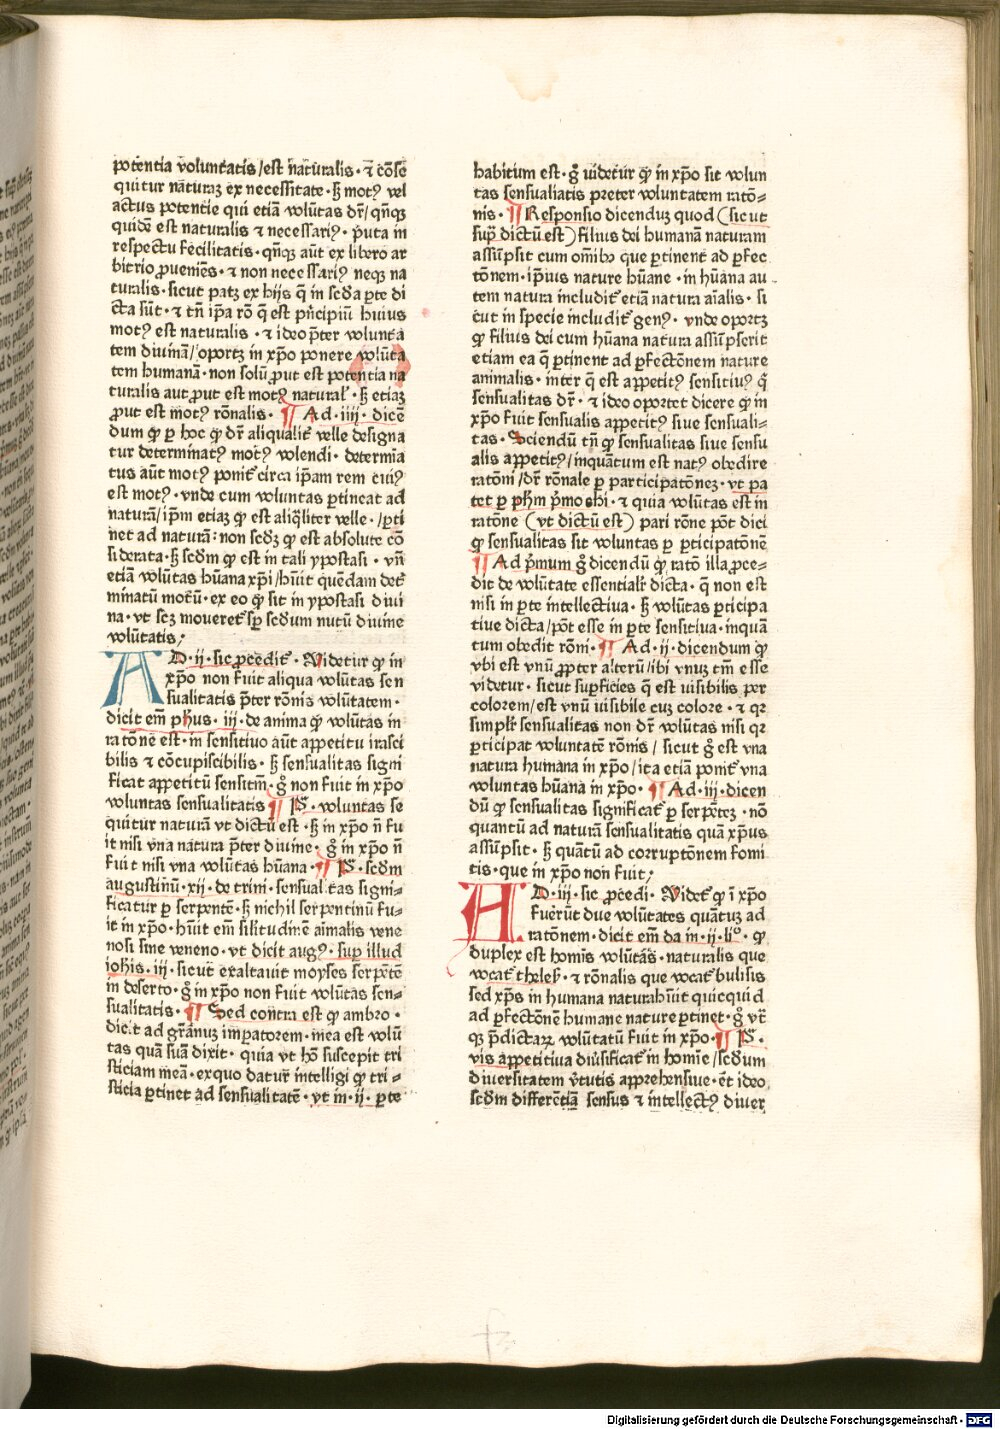 potentia voluntatis/est naturalis· ⁊ cōse
quitur naturaꝫ ex necessitate· sꝫ motꝰ vel
actus potentie qui etiā volūtas dr̄/qn̄qꝫ
quidē est naturalis ⁊ necessariꝰ· puta in
respectu fecilitatis· qn̄qꝫ aūt ex libero ar
bitrio ꝓueniēs· ⁊ non necessariꝰ neqꝫ na
turalis· sicut patꝫ ex hijs q̄ in scd̄a ꝑte di
cta sūt· ⁊ tn̄ ip̄a rō q̄ est pn̄cipiū huius
motꝰ est naturalis· ⁊ ideo p̄ter volunta
tem diuinā/oportꝫ in xp̄o ponere volūta
tem humanā· non solū ꝓut est potentia na
turalis aut ꝓut est motꝰ natural'· sꝫ etiaꝫ
ꝓut est motꝰ rōnalis· ¶ Ad·iiij· dicē
dum ꝙ ꝑ hoc ꝙ dr̄ aliqualit̄ velle designa
tur determinatꝰ motꝰ volendi· determīa
tus aūt motꝰ ponit̄ circa ip̄am rem cuiꝰ
est motꝰ· vnde cum voluntas ꝑtineat ad
naturā/ip̄m etiaꝫ ꝙ est aliq̄liter velle·/ꝑti
net ad naturā: non scd̄ꝫ ꝙ est absolute cō
siderata· sꝫ scd̄m ꝙ est in tali ypostasi· vn̄
etiā volūtas hūana xp̄i/hūit quēdam det̄
minatū motū· ex eo ꝙ sit in ypostasi diui
na· vt scꝫ moueret̄ sꝑ scd̄um nutū diuine
volūtatis/
AD·ij·sic ꝓcedit̄· Videtur ꝙ in
xp̄o non fuit aliqua volūtas sen
sualitatis p̄ter rōnis volūtatem·
dicit em̄ ph̄us· iij·de anima ꝙ volūtas in
ratōne est· in sensitiuo aūt appetitu irasci
bilis ⁊ cōcupiscibilis· sꝫ sensualitas signi
ficat appetitū sensitm̄· gͦ non fuit in xp̄o
voluntas sensualitatis ¶ P̄· voluntas se
quitur naturā vt dictū est· sꝫ in xp̄o n̄ fu
it nisi vna natura p̄ter diuine· gͦ in xp̄o n̄
fuit nisi vna volūtas hūana· ¶ P̄· scd̄m
augustinū· xij· de trini· sensualitas signi⸗
ficatur ꝑ serpentē· sꝫ nichil serpentinū fu⸗
it in xp̄o· hūit em̄ silitudinē aīmalis vene
nosi sine veneno· vt dicit augꝰ· suꝑ illud
ioh̄is·iij· sicut exaltauit moyses serpētē
in deserto· gͦ in xp̄o non fuit volūtas sen⸗
sualitatis· ¶ Sed contra est ꝙ ambro·
dicit ad gr̄anuꝫ impatorem· mea est volū
tas quā suā dixit· quia vt hō suscepit tri
sticiam meā· exquo datur intelligi ꝙ tri⸗
sticia ꝑtinet ad sensualitatē· vt in·ij· ꝑte
habitum est· gͦ uidetur ꝙ in xp̄o sit volun
tas sensualiatis preter voluntatem ratō⸗
nis· ¶ Responsio dicenduꝫ quod (sicut
suꝓ dictū est) filius dei humanā naturam
assūpsit cum om̄ibꝰ que ꝑtinent ad ꝑfec
tōnem· ip̄ius nature hūane· in hūana au⸗
tem natura includit̄ etiā natura aīalis· si
cut in specie includit̄ genꝰ· vnde oportꝫ
ꝙ filius dei cum hūana natura assūpserit
etiam ea q̄ ꝑtinent ad ꝑfectōnem nature
animalis· inter q̄ est appetitꝰ sensitiuꝰ q̄
sensualitas dr̄· ⁊ ideo oportet dicere ꝙ in
xp̄o fuit sensualis appetitꝰ siue sensuali⸗
tas· Sciendū tn̄ ꝙ sensualitas siue sensu
alis appetitꝰ/inquātum est natꝰ obedire
ratōni/dr̄ rōnale ꝑ participatōneꝫ· vt pa
tet ꝑ ph̄m pͥmo ethi· ⁊ quia volūtas est in
ratōne (vt dictū est) pari rōne pōt dici
ꝙ sensualitas sit voluntas ꝑ ꝑticipatōnē
¶ Ad pͥmum gͦ dicendū ꝙ ratō illa ꝓce⸗
dit de volūtate essentialit̄ dicta· q̄ non est
nisi in ꝑte intellectiua· sꝫ volūtas ꝑticipa
tiue dicta/pōt esse in ꝑte sensitiua· inquā
tum obedit rōni· ¶ Ad·ij·dicendum ꝙ
vbi est vnū ꝓpter alterū/ibi vnuꝫ tm̄ esse
videtur· sicut suꝑficies q̄ est uisibilis per
colorem/est vnū uisibile cuꝫ colore· ⁊ qꝛ
simplr̄ sensualitas non dr̄ volūtas nisi qꝛ
ꝑticipat voluntatē rōnis/ sicut gͦ est vna
natura humana in xp̄o/ita etiā ponit̄ vna
voluntas hūana in xp̄o· ¶ Ad·iij·dicen
dū ꝙ sensualitas significat̄ ꝑ serpēteꝫ· nō
quantū ad naturā sensualitatis quā xp̄us
assūpsit· sꝫ quātū ad corruptōnem fomi
tis· que in xp̄o non fuit/
AD·iij·sic ꝓcedi· Videt̄ ꝙ ī xp̄o
fuerūt due volūtates quātuꝫ ad
ratōnem· dicit em̄ da in·ij·liº· ꝙ
duplex est homīs volūtās· naturalis que
vocat̄ thelesꝭ· ⁊ rōnalis que vocat̄ bulisis
sed xp̄s in humana natura hūit quicquid
ad ꝑfectōnē humane nature ꝑtinet· gͦ vt̄
qꝫ p̄dictaꝝ volūtatū fuit in xp̄o· ¶ P̄·
vis appetitiua diu̓sificat̄ in homīe/scd̄um
diuersitatem v̓tutis apprehensiue· et̄ ideo
scd̄m differētiā sensus ⁊ intellectꝰ diuer
Digitalisierung gefördert durch die Deutsche Forschungsgemeinschaft · DFG